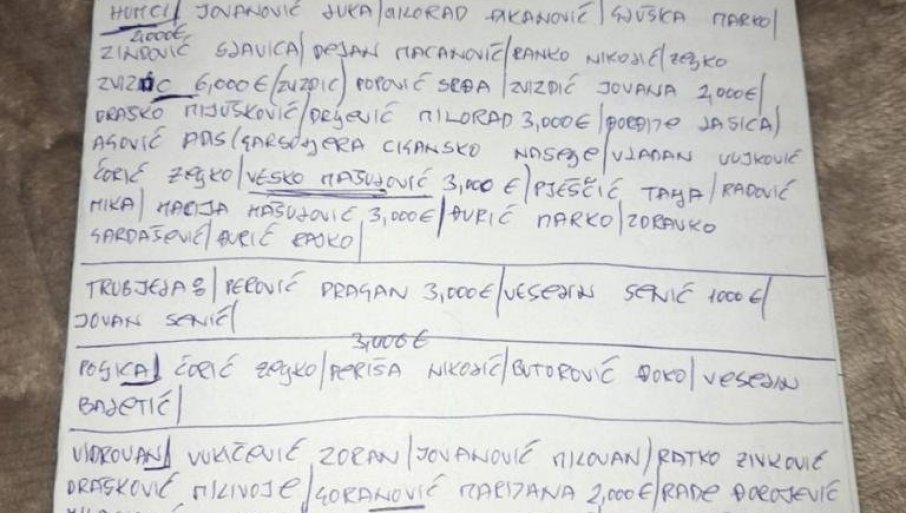 HUMCI/ JOVANOVIĆ JUKA/MILORAD ĐIKANOVIĆ/GJUŠKA MARKO/
2,000€
ZINDOVIĆ SJAVICA/DEJAN MACANOVIĆ/RANKO NIKOJIĆ/ZEJKO
ZVIZDIĆ 6,000€/ZVIZDIĆ/POPOVIĆ SRĐA/ZVIZDIĆ JOVANA 2,000€/
DRAŠKO MIJUŠKOVIĆ/DRJEVIĆ MILORAD 3,000€/ĐORDIJE JASICA/
AGOVIĆ ADIS/GARSONJERA CIGANSKO NASEJE/VJADAN VUJKOVIĆ
ĆORIĆ ZEJKO/VESKO MAŠUJOVIĆ 3,000€/PJEŠČIĆ TANJA/RADOVIĆ
MIKA/MARIJA MAŠUJOVIĆ 3,000€/ĐURIĆ MARKO/ZORANKO
GARDAŠEVIĆ/ĐURIĆ RAJKO/
TRUBJEJA 8/PEROVIĆ DRAGAN 3,000€/VESEJIN SENIĆ 1000€/
JOVAN SENIĆ/
3,000€
POJICA/ ĆORIĆ ZEJKO/PERIŠA NIKOJIĆ/BUTOROVIĆ ĐOKO/VESEJIN
BAJETIĆ/
VIDROVAN/ VUKIČEVIĆ ZORAN/JOVANOVIĆ MILOVAN/RATKO ZIVKOVIĆ
DRAŠKOVIĆ MILIVOJE/GORANOVIĆ MARIJANA 2,000€/RADE ĐOROJEVIĆ